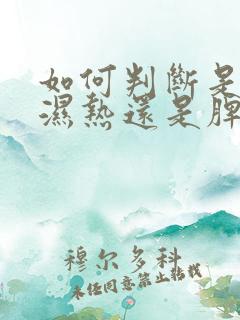 如何判斷是
濕熱還是脾
穆尔多科
未经同意禁止转载